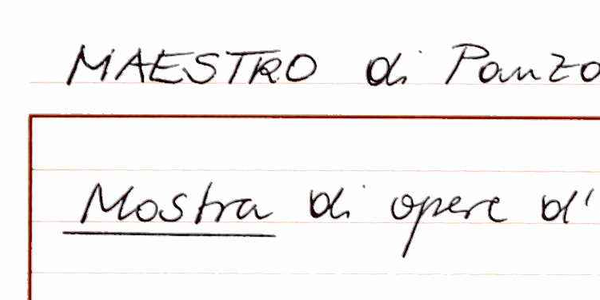 MAESTRO di Panzo
Mostra di opere d'